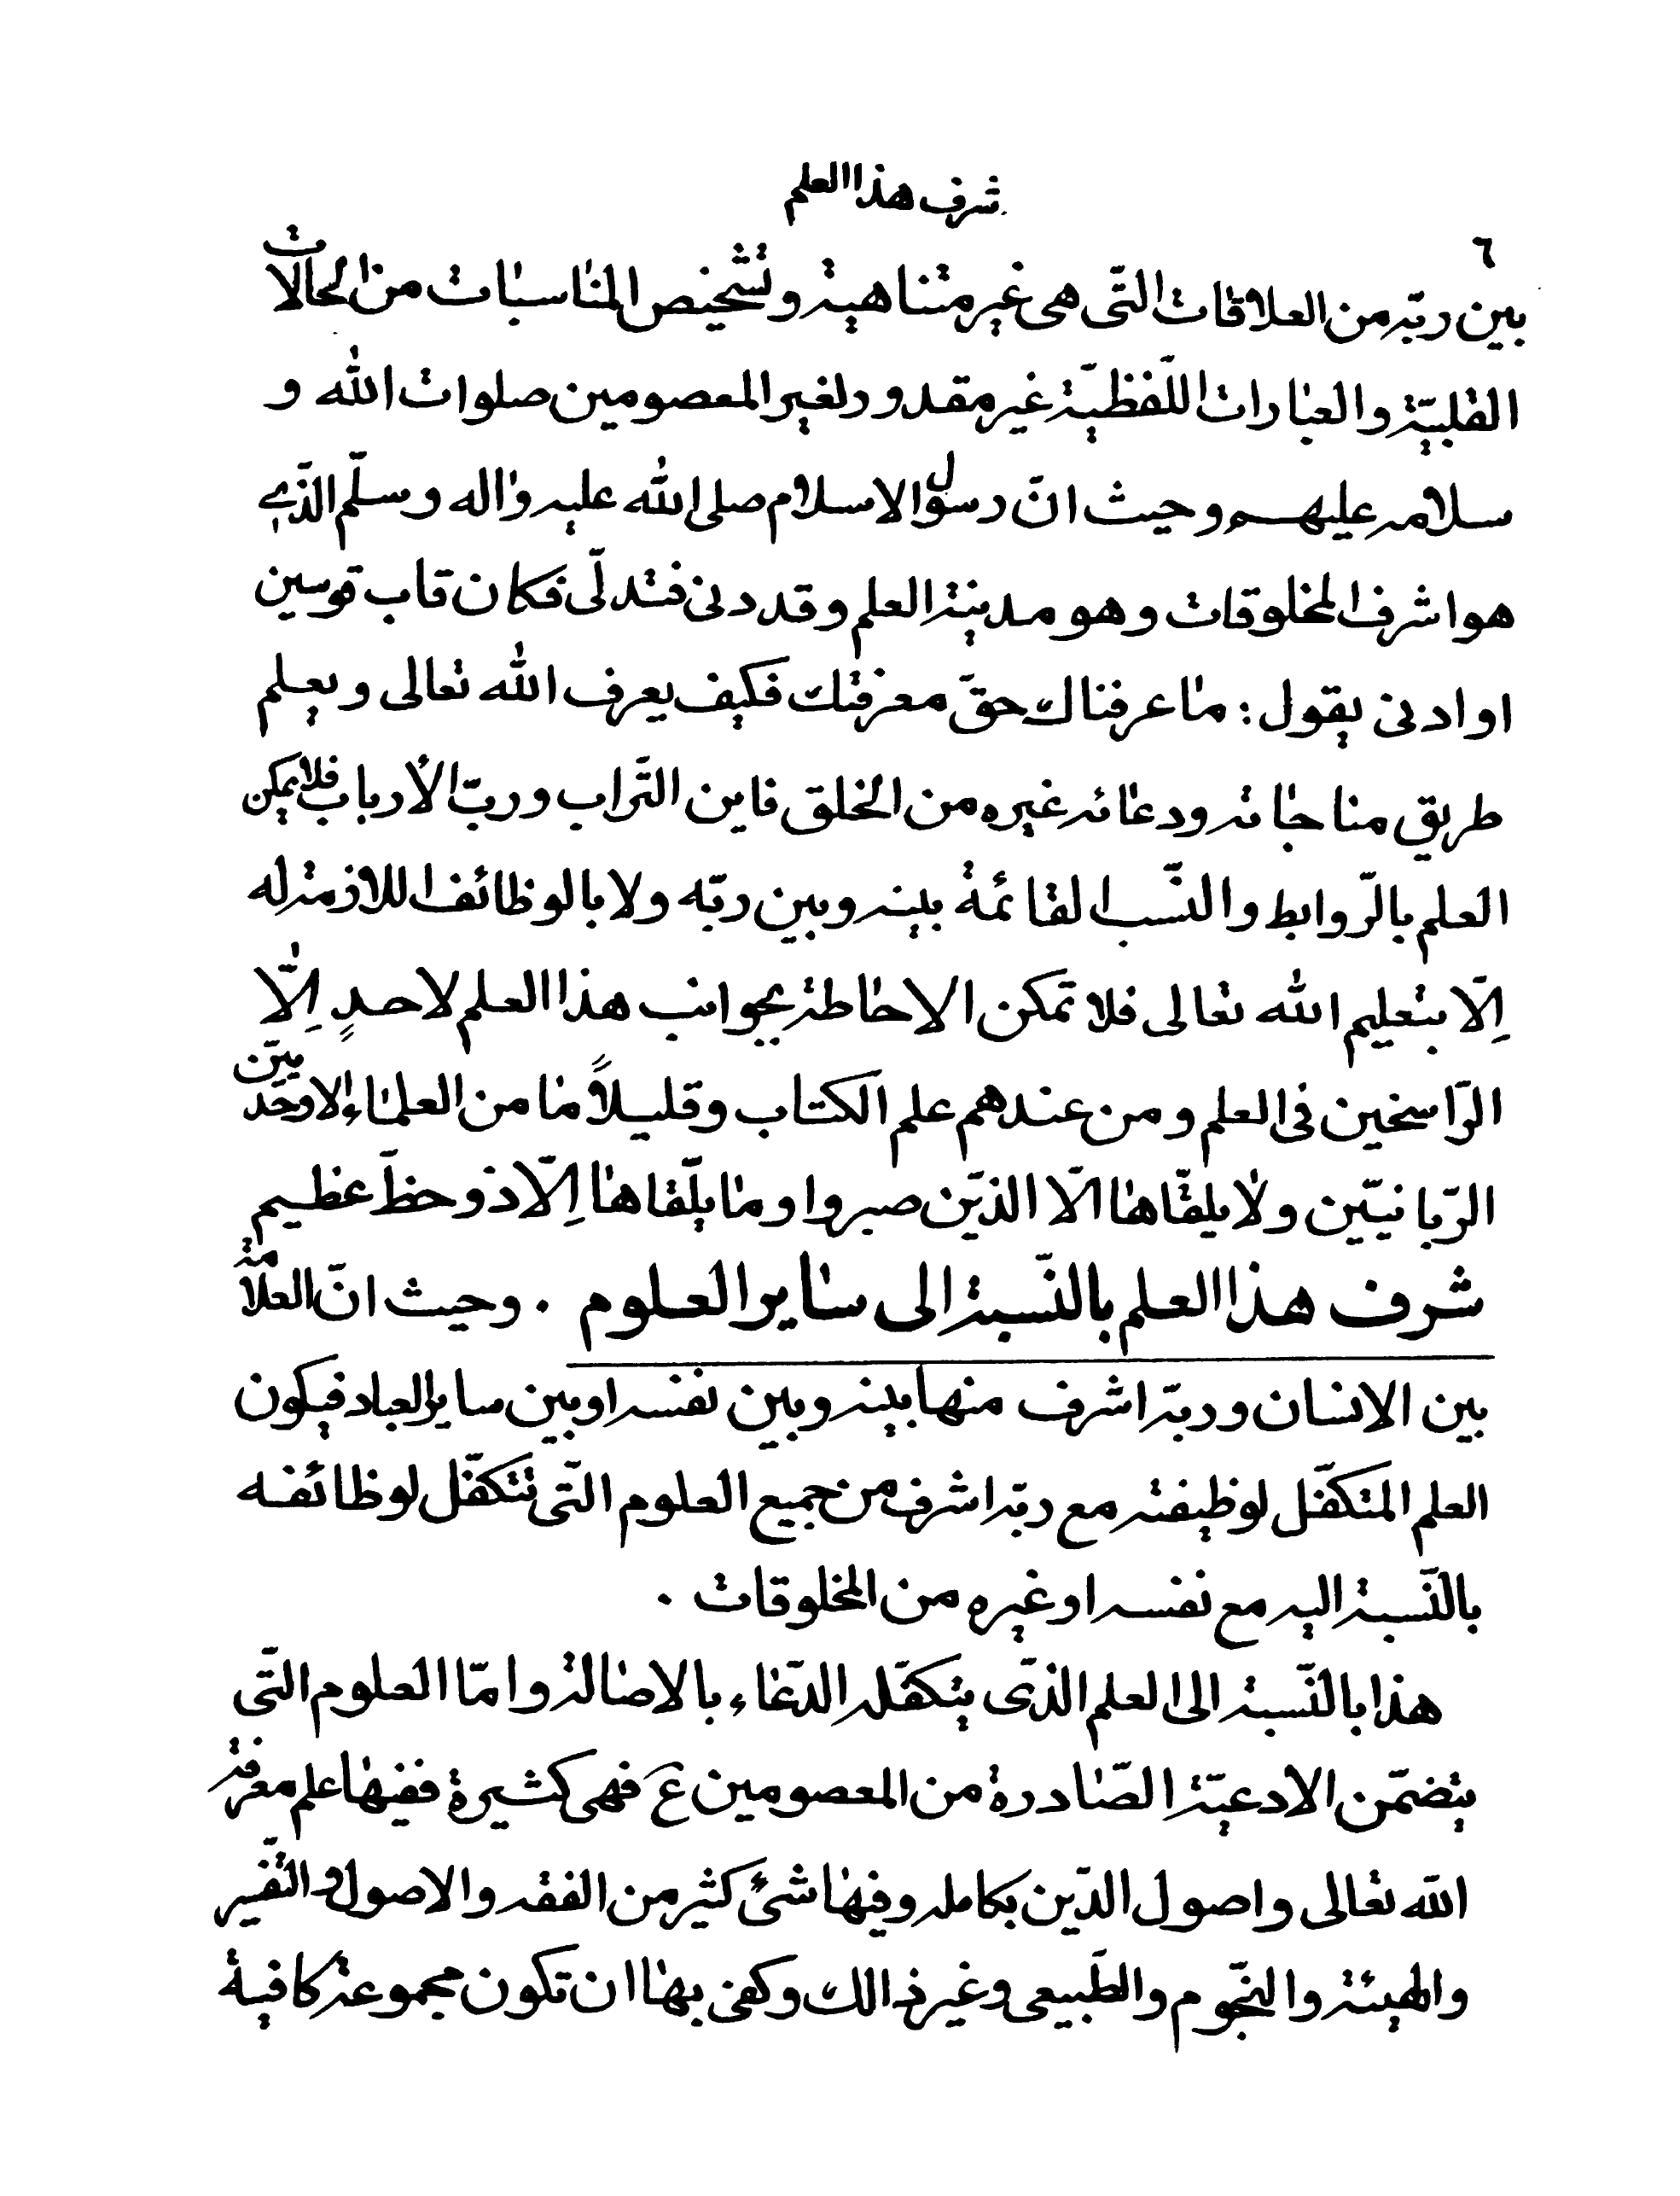 شرف هذا العلم
٦
بين ربّه من العلاقات التّى هى غير متناهية و تشخيص المناسبات من الحالات
القلبيّة و العبارات اللّفظيّة غير مقدور لغير المعصومين صلوات الله و
سلامه عليهم و حيث انّ رسول الاسلام صلى الله عليه واله و سلّم الذّي
هو اشرف المخلوقات و هو مدينة العلم و قد دنى فتدلّى فكان قاب قوسين
او ادنى يقول : ما عرفناك حقّ معرفتك فكيف يعرف الله تعالى و يعلم
طريق مناجاته و دعائه غيره من الخلق فاين التّراب و ربّ الأرباب فلا يمكن
العلم بالرّوابط و النّسب القائمة بينه و بين ربّه و لا بالوظائف اللازمة له
اِلّا بتعليم الله تعالى فلا تمكن الاحاطة بجوانب هذا العلم لاحدٍ اِلّا
الرّاسخين فى العلم و من عندهم علم الكتاب و قليلاً ما من العلماء الاوحديّين
الرّبانيّين و لا يلقّاها الّا الذيّن صبروا و ما يلّقاها اِلّا ذو حظّ عظيم
شرف هذا العلم بالنّسبة الى ساير العلوم . و حيث انّ العلامة
بين الانسان و ربّه اشرف منها بينه و بين نفسه او بين ساير العباد فيكون
العلم المتكفّل لوظيفته مع ربّه اشرف من جميع العلوم التّى تتكفّل لوظائفه
بالنّسبة اليه مع نفسه او غيره من المخلوقات .
هذا بالنّسبة الى العلم الذّى يتكفّله الدّعاء بالاصالة و امّا العلوم التّى
يتضمّن الادعيّة الصّادرة من المعصومين ع فهى كثيرة ففيها علم معرفة
الله تعالى و اصول الدّين بكامله و فيها شئ كثير من الفقه و الاصول و التّفسير
و الهيئة و النّجوم و الطّبيعى و غير ذالك و كفى بها ان تكون مجموعة كافية